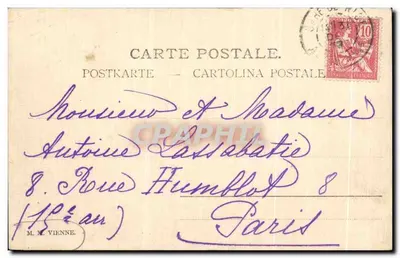 CARTE POSTALE.
POSTKARTE — CARTOLINA POSTALE
10
Monsieur et Madame
Antoine Lassabatie
8. Rue Humblot 8
(15e arr)
Paris
M. M. VIENNE.
CPAPHIL